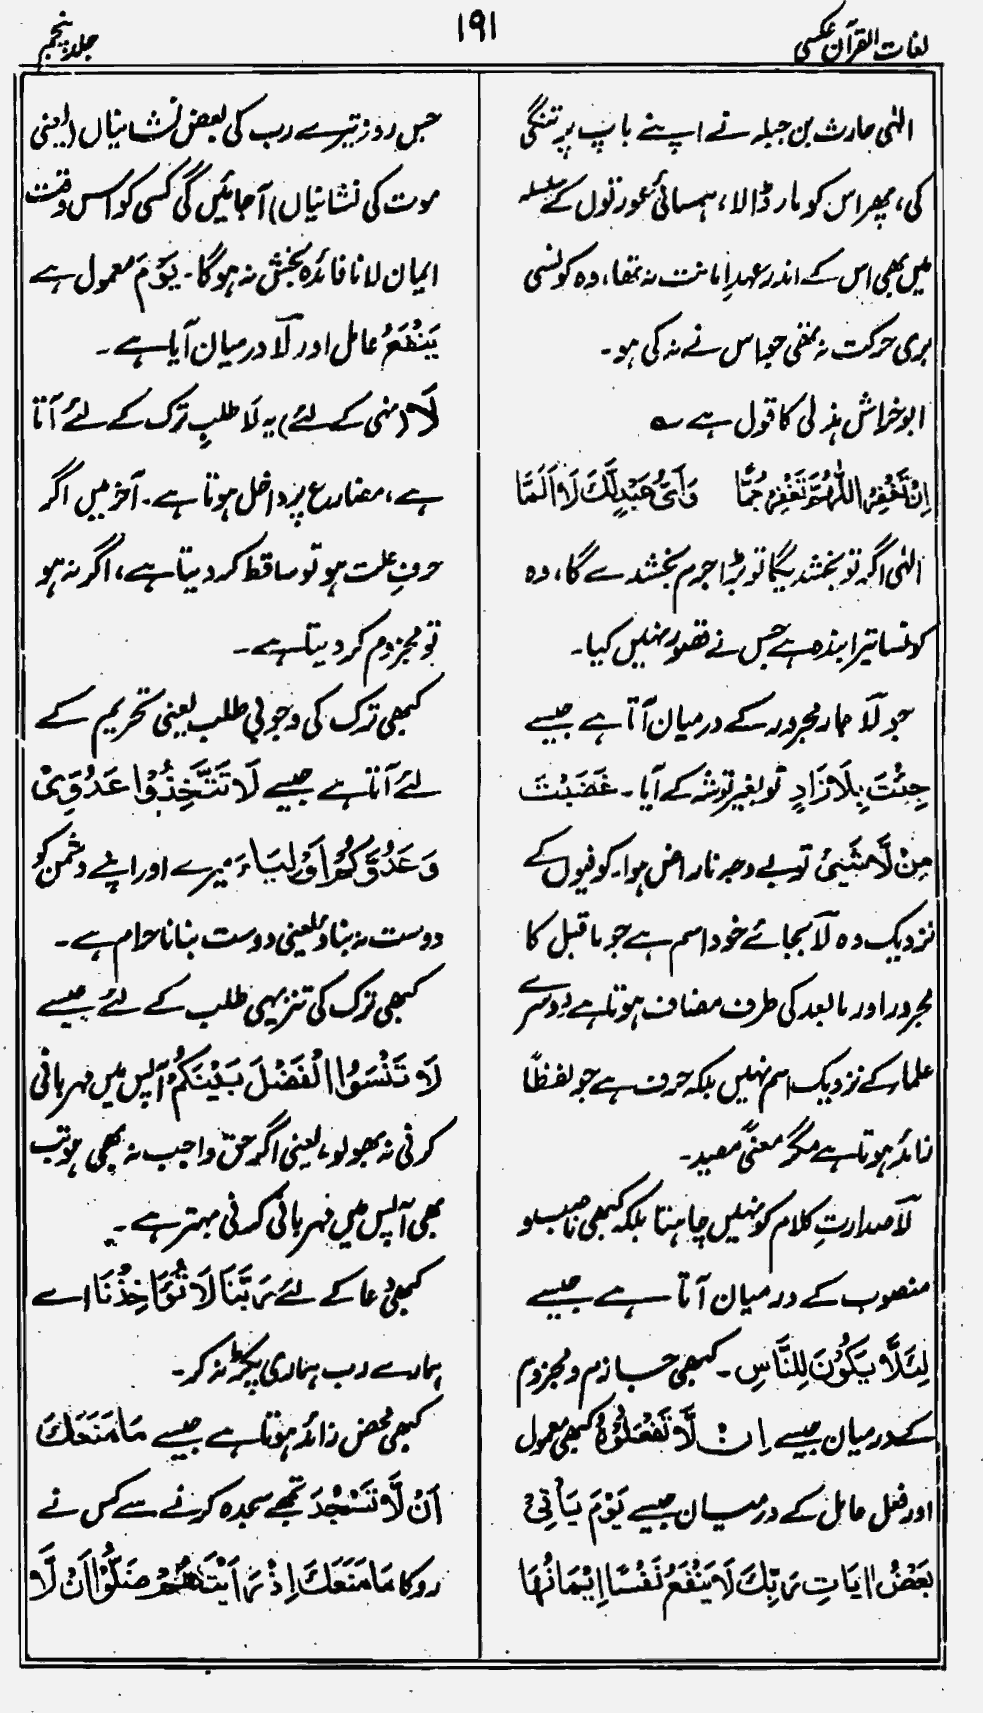 لغات القرآن عکسی
۱۹۱
جلد پنجم
الٰہی حارث بن جبلہ نے اپنے باپ پر تنگی
کی، پھر اس کو مار ڈالا، ہمسائی عورتوں کے سلسلہ
میں بھی اس کے اندر عہدِ امانت نہ تھا، وہ کونسی
بری حرکت نہ تھی جو اس نے نہ کی ہو۔
ابو خراش ہذلی کا قول ہے ؎
اِنْ تَغْفِرِ اللّٰهُمَّ تَغْفِرْ جَمًّا وَاَیُّ عَبْدٍ لَّكَ لَا اَلَمَّا
الٰہی اگر تو بخشدیگا تو بڑا جرم بخشدے گا، وہ
کونسا تیرا بندہ ہے جس نے قصور نہیں کیا۔
جو لَا جار مجرور کے درمیان آتا ہے جیسے
جِئْتَ بِلَا زَادٍ تو بغیر توشہ کے آیا۔ غَضِبْتَ
مِنْ لَّا شَیْئٍ تو بے وجہ ناراض ہوا۔ کوفیوں کے
نزدیک وہ لَا بجائے خود اسم ہے جو ماقبل کا
مجرور اور مابعد کی طرف مضاف ہوتا ہے دوسرے
علماء کے نزدیک اسم نہیں بلکہ حرف ہے جو لفظًا
زائد ہوتا ہے مگر معنًی مفید۔
لَا صدارتِ کلام کو نہیں چاہتا بلکہ کبھی ناصب و
منصوب کے درمیان آتا ہے جیسے
لِئَلَّا یَكُوْنَ لِلنَّاسِ۔ کبھی جازم و مجزوم
کے درمیان جیسے اِنْ لَّا تَفْعَلُوْهُ کبھی معمول
اور فعل عامل کے درمیان جیسے یَوْمَ یَاْتِیْ
بَعْضُ اٰیَاتِ رَبِّكَ لَا یَنْفَعُ نَفْسًا اِیْمَانُهَا
جس روز تیرے رب کی بعض نشانیاں (یعنی
موت کی نشانیاں) آجائیں گی کسی کو اس وقت
ایمان لانا فائدہ بخش نہ ہوگا۔ یَوْمَ معمول ہے
یَنْفَعُ عامل اور لَا درمیان آیا ہے۔
لَا (نہی کے لئے) یہ لَا طلبِ ترک کے لئے آتا
ہے، مضارع پر داخل ہوتا ہے۔ آخر میں اگر
حرفِ علت ہو تو ساقط کر دیتا ہے، اگر نہ ہو
تو مجزوم کر دیتا ہے۔
کبھی ترک کی وجوبی طلب یعنی تحریم کے
لئے آتا ہے جیسے لَا تَتَّخِذُوْا عَدُوِّیْ
وَعَدُوَّكُمْ اَوْلِیَاءَ میرے اور اپنے دشمن کو
دوست نہ بناؤ یعنی دوست بنانا حرام ہے۔
کبھی ترک کی تنزیہی طلب کے لئے جیسے
لَا تَنْسَوُا الْفَضْلَ بَیْنَكُمْ آپس میں مہربانی
کرنی نہ بھولو، یعنی اگر حق واجب نہ بھی ہو تب
بھی آپس میں مہربانی کرنی بہتر ہے۔
کبھی دعا کے لئے رَبَّنَا لَا تُؤَاخِذْنَا اے
ہمارے رب ہماری پکڑ نہ کر۔
کبھی محض زائد ہوتا ہے جیسے مَا مَنَعَكَ
اَنْ لَّا تَسْجُدَ تجھے سجدہ کرنے سے کس نے
روکا مَا مَنَعَكَ اِذْ رَاَیْتَهُمْ ضَلُّوْا اَنْ لَّا